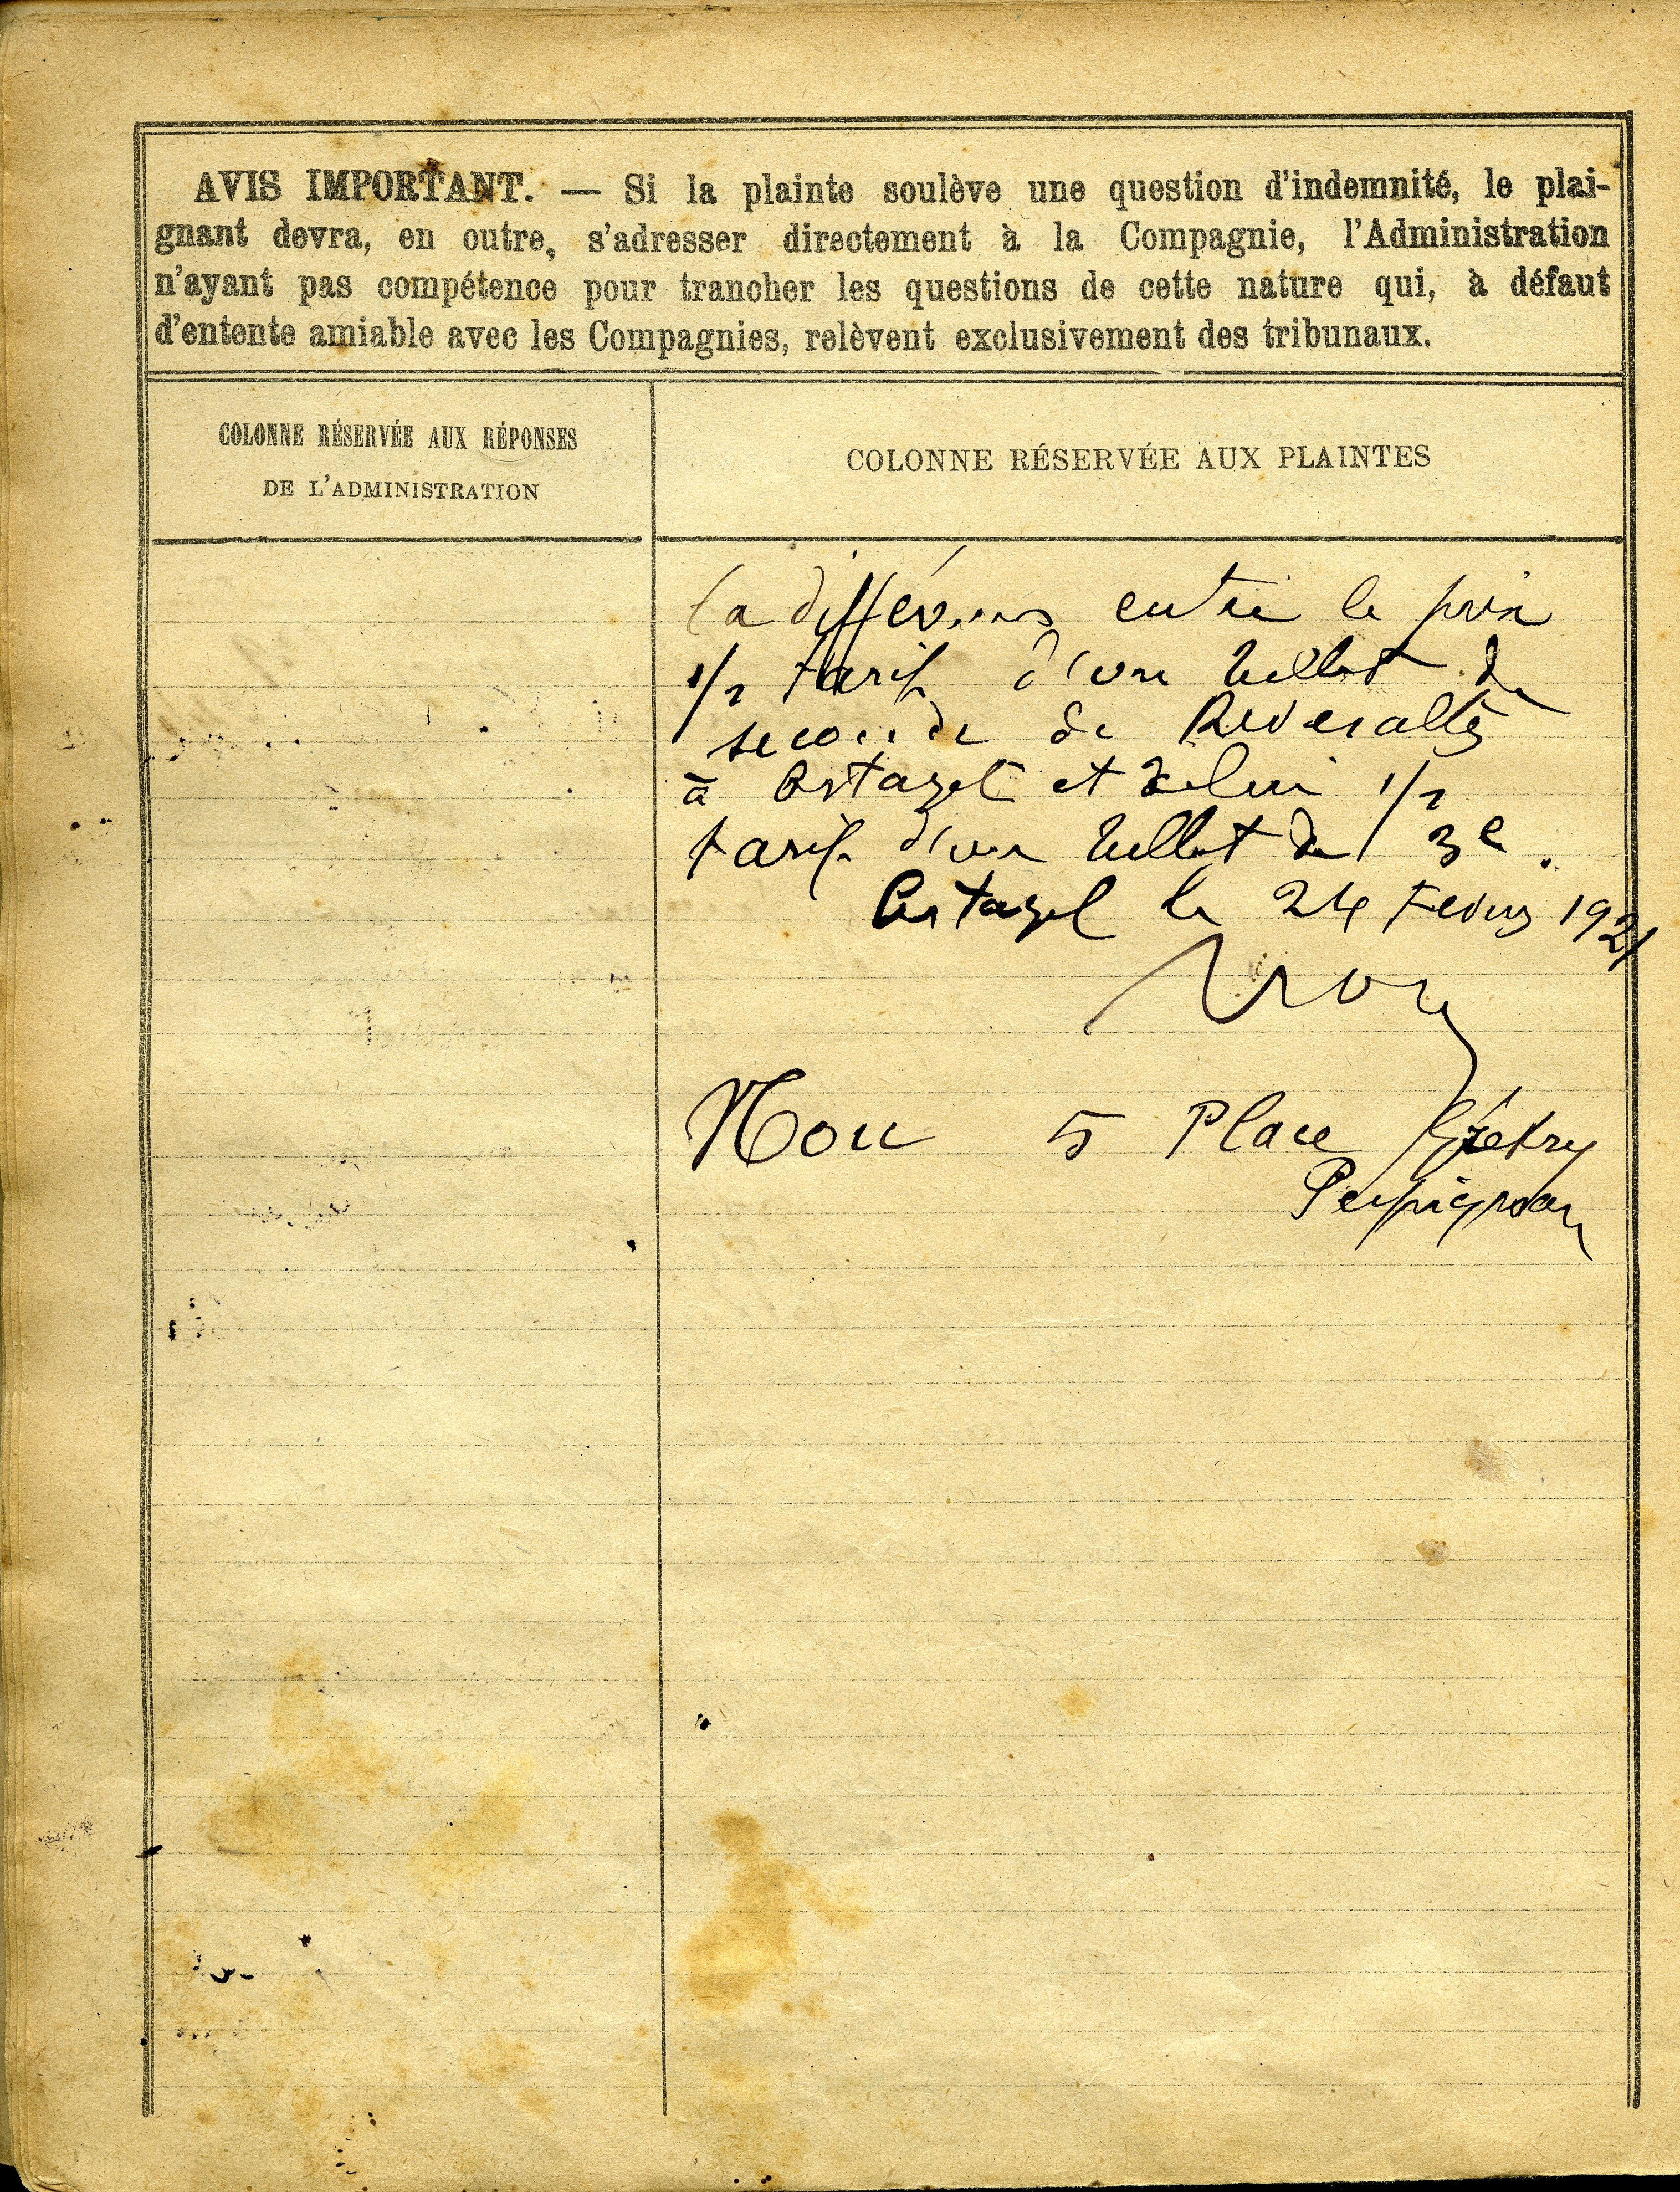 AVIS IMPORTANT. — Si la plainte soulève une question d'indemnité, le plai-
gnant devra, en outre, s'adresser directement à la Compagnie, l'Administration
n'ayant pas compétence pour trancher les questions de cette nature qui, à défaut
d'entente amiable avec les Compagnies, relèvent exclusivement des tribunaux.
COLONNE RÉSERVÉE AUX RÉPONSES
DE L'ADMINISTRATION
COLONNE RÉSERVÉE AUX PLAINTES
la différence entre le prix
1/2 tarif d'un billet de
seconde de Rivesaltes
à Estagel et celui 1/2
tarif d'un billet de 3e.
Estagel le 24 Février 1921
5 Place Grétry
Perpignan